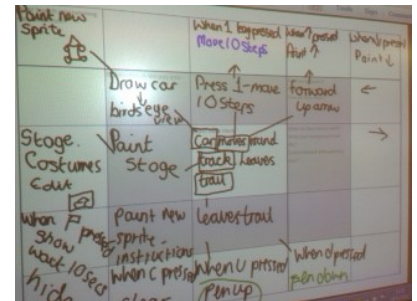 Paint new
Sprite
When 1 key pressed
Move 10 Steps
When ↑ pressed
Point ↑
When ↓ pressed
Point ↓
Draw car
↓
birds eye
view
Press 1-move
10 Steps
forward
up arrow
←
Stage.
Costumes
Edit
Paint
Stage
Car moves round
track leaves
trail
→
When pressed
Show
wait 10 secs
hide
paint new
sprite-
instructions
When C pressed
clear
leaves trail
When U pressed
Pen up
When d pressed
pen down